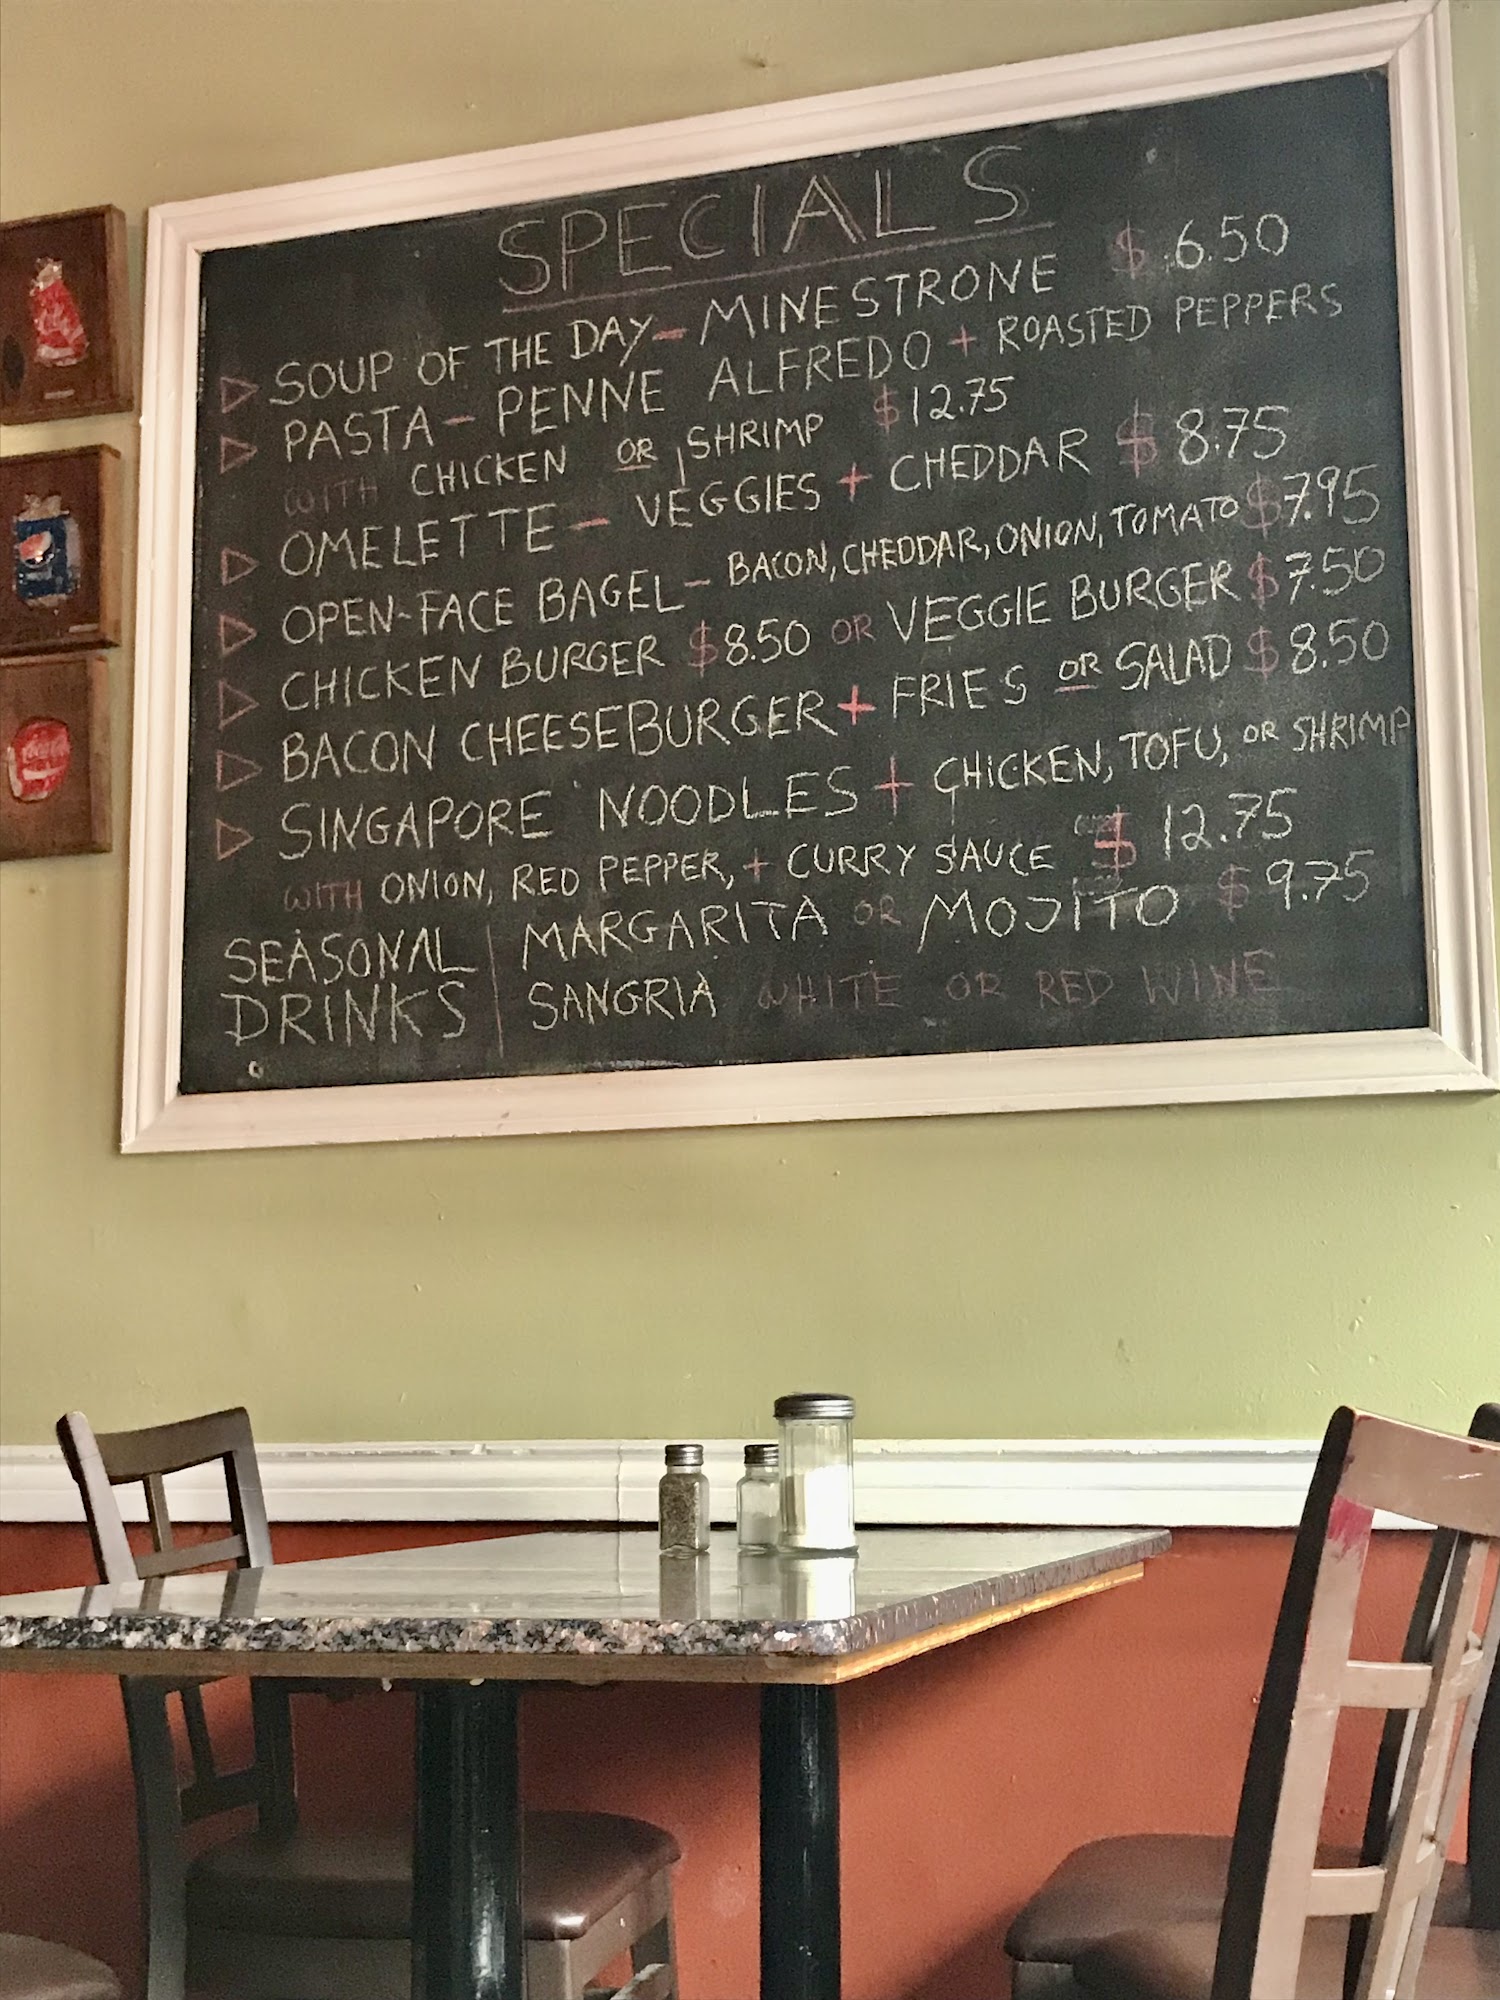 SPECIALS
SOUP OF THE DAY - MINESTRONE $6.50
PASTA - PENNE ALFREDO + ROASTED PEPPERS
WITH CHICKEN OR SHRIMP $12.75
OMELETTE - VEGGIES + CHEDDAR $8.75
OPEN-FACE BAGEL - BACON, CHEDDAR, ONION, TOMATO $7.95
CHICKEN BURGER $8.50 OR VEGGIE BURGER $7.50
BACON CHEESEBURGER + FRIES OR SALAD $8.50
SINGAPORE NOODLES + CHICKEN, TOFU, OR SHRIMP
WITH ONION, RED PEPPER, + CURRY SAUCE $12.75
SEASONAL DRINKS
MARGARITA OR MOJITO $9.75
SANGRIA WHITE OR RED WINE